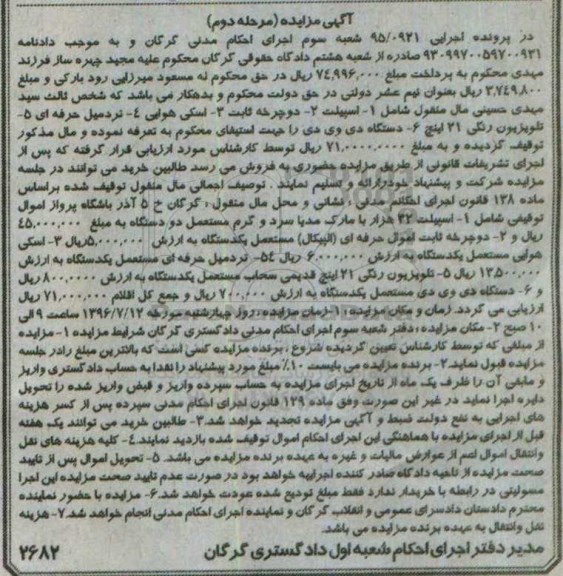 آگهی مزایده (مرحله دوم)
در پرونده اجرایی ۹۵/۰۹۲۱ شعبه سوم اجرای احکام مدنی گرگان و به موجب دادنامه
۹۳۰۹۹۷۰۰۵۹۷۰۰۹۳۱ صادره از شعبه هشتم دادگاه حقوقی گرگان محکوم علیه مجید چهره ساز فرزند
مهدی محکوم به پرداخت مبلغ ۷۴,۹۹۶,۰۰۰ ریال در حق محکوم له مسعود میرزایی رود بارکی و مبلغ
۳,۷۴۹,۸۰۰ ریال بعنوان نیم عشر دولتی در حق دولت محکوم و بدهکار می باشد که شخص ثالث سید
مهدی حسینی مال منقول شامل ۱- اسپیلت ۲- دوچرخه ثابت ۳- اسکی هوایی ۴- تردمیل حرفه ای ۵-
تلویزیون رنگی ۲۱ اینچ ۶- دستگاه دی وی دی را جهت استیفای محکوم به تعرفه نموده و مال مذکور
توقیف گردیده و به مبلغ ۷۱,۰۰۰,۰۰۰ ریال توسط کارشناس مورد ارزیابی قرار گرفته که پس از
اجرای تشریفات قانونی از طریق مزایده حضوری به فروش می رسد طالبین خرید می توانند در جلسه
مزایده شرکت و پیشنهاد خود را ارائه و تسلیم نمایند . توصیف اجمالی مال منقول توقیف شده براساس
ماده ۱۳۸ قانون اجرای احکام مدنی : نشانی و محل مال منقول : گرگان خ ۵ آذر باشگاه پرواز اموال
توقیفی شامل ۱- اسپیلت ۳۲ هزار با مارک مدیا سرد و گرم مستعمل دو دستگاه به مبلغ ۴۵,۰۰۰,۰۰۰
ریال و ۲- دوچرخه ثابت اموال حرفه ای (الپیکال) مستعمل یکدستگاه به ارزش ۵,۰۰۰,۰۰۰ ریال ۳- اسکی
هوایی مستعمل یکدستگاه به ارزش ۶,۰۰۰,۰۰۰ ریال ۴- تردمیل حرفه ای مستعمل یکدستگاه به ارزش
۱۳,۵۰۰,۰۰۰ ریال ۵- تلویزیون رنگی ۲۱ اینچ قدیمی سحاب مستعمل یکدستگاه به ارزش ۸۰۰,۰۰۰ ریال
و ۶- دستگاه دی وی دی مستعمل یکدستگاه به ارزش ۷۰۰,۰۰۰ ریال و جمع کل اقلام ۷۱,۰۰۰,۰۰۰ ریال
ارزیابی می گردد. زمان و مکان مزایده: ۱- زمان مزایده : روز چهارشنبه مورخه ۱۳۹۶/۷/۱۲ ساعت ۹ الی
۱۰ صبح ۲- مکان مزایده : دفتر شعبه سوم اجرای احکام مدنی دادگستری گرگان شرایط مزایده ۱- مزایده
از مبلغی که توسط کارشناس تعیین گردیده شروع . برنده مزایده کسی است که بالاترین مبلغ را در جلسه
مزایده قبول نماید ۲- برنده مزایده می بایست ۱۰٪ مبلغ مورد پیشنهاد را نقدا به حساب دادگستری واریز
و مابقی آن را ظرف یک ماه از تاریخ اجرای مزایده به حساب سپرده واریز و قبض واریز شده را تحویل
دایره اجرا نماید در غیر این صورت وفق ماده ۱۲۹ قانون اجرای احکام مدنی سپرده پس از کسر هزینه
های اجرایی به نفع دولت ضبط و آگهی مزایده تجدید خواهد شد. ۳- طالبین خرید می توانند یک هفته
قبل از اجرای مزایده با هماهنگی این اجرای احکام اموال توقیف شده بازدید نمایند. ۴- کلیه هزینه های نقل
وانتقال اموال اعم از عوارض مالیات و غیره به عهده برنده مزایده می باشد. ۵- تحویل اموال پس از تایید
صحت مزایده از ناحیه دادگاه صادر کننده اجراییه خواهد بود در صورت عدم تایید صحت مزایده این اجرا
مسولیتی در رابطه با خریدار ندارد فقط مبلغ تودیع شده عودت خواهد شد. ۶- مزایده با حضور نماینده
محترم دادستان دادسرای عمومی و انقلاب گرگان و نماینده اجرای احکام مدنی انجام خواهد شد. ۷- هزینه
نقل وانتقال به عهده برنده مزایده می باشد.
مدیر دفتر اجرای احکام شعبه اول دادگستری گرگان ۲۶۸۲